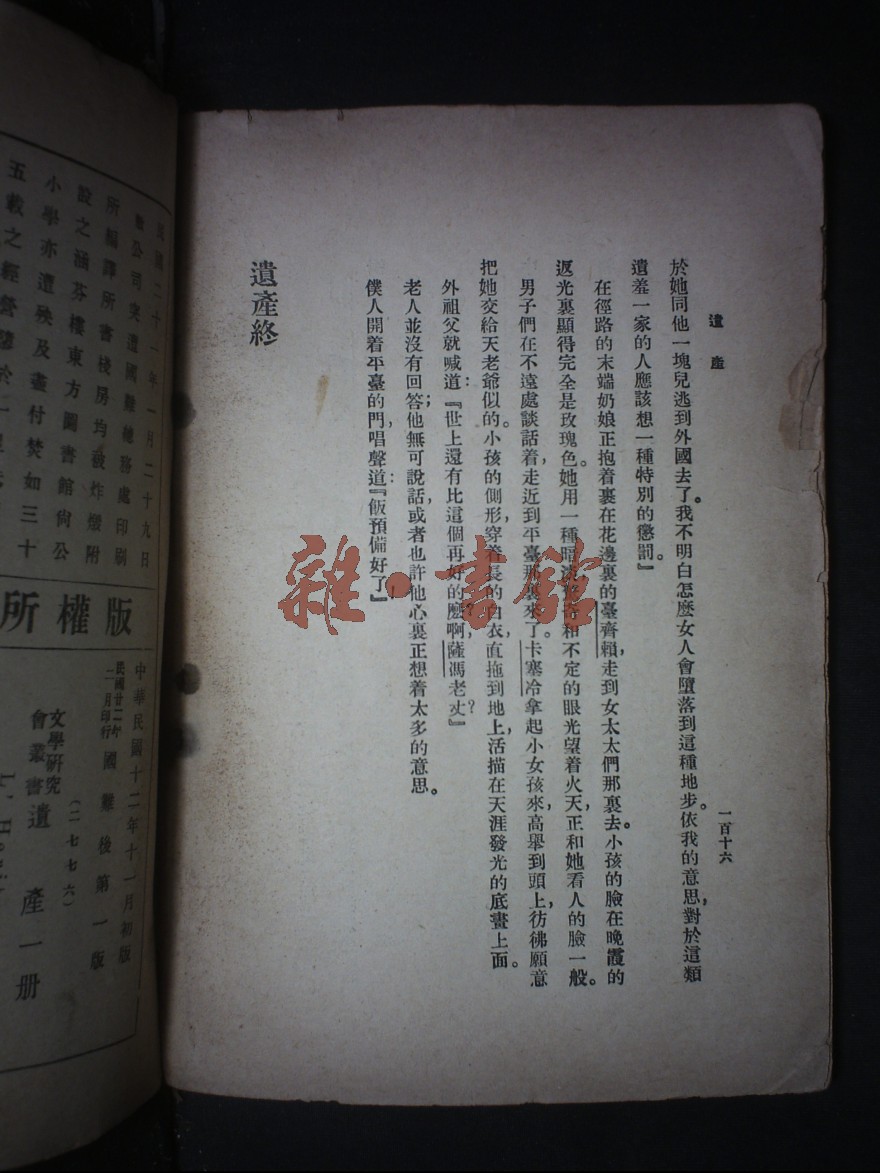 遺產
一百十六
於她同他一塊兒逃到外國去了。我不明白怎麼女人會墮落到這種地步。依我的意思，對於這類
遺羞一家的人應該想一種特別的懲罰。』
在徑路的末端奶娘正抱着裹在花邊裏的臺齊賴，走到女太太們那裏去。小孩的臉在晚霞的
返光裏顯得完全是玫瑰色。她用一種暗淡和不定的眼光望着火天正和她看人的臉一般。
男子們在不遠處談話着，走近到平臺那裏來了。卡塞冷拿起小女孩來，高舉到頭上，彷彿願意
把她交給天老爺似的。小孩的側形，穿着長的白衣，直拖到地上，活描在天涯發光的底畫上面。
外祖父就喊道：『世上還有比這個再好的麼？啊，薩馮老丈？』
老人並沒有回答；他無可說話，或者也許他心裏正想着太多的意思。
僕人開着平臺的門，唱聲道：『飯預備好了』
遺產終
雜·書館
民國二十一年一月二十九日
敝公司突遭國難總務處印刷
所編譯所書棧房均被炸燬附
設之涵芬樓東方圖書館尚公
小學亦遭殃及盡付焚如三十
五載之經營隳於一旦
版權所
中華民國十二年十一月初版
民國廿二年二月印行
國難後第一版
(二七七六)
文學研究會叢書
遺產一册